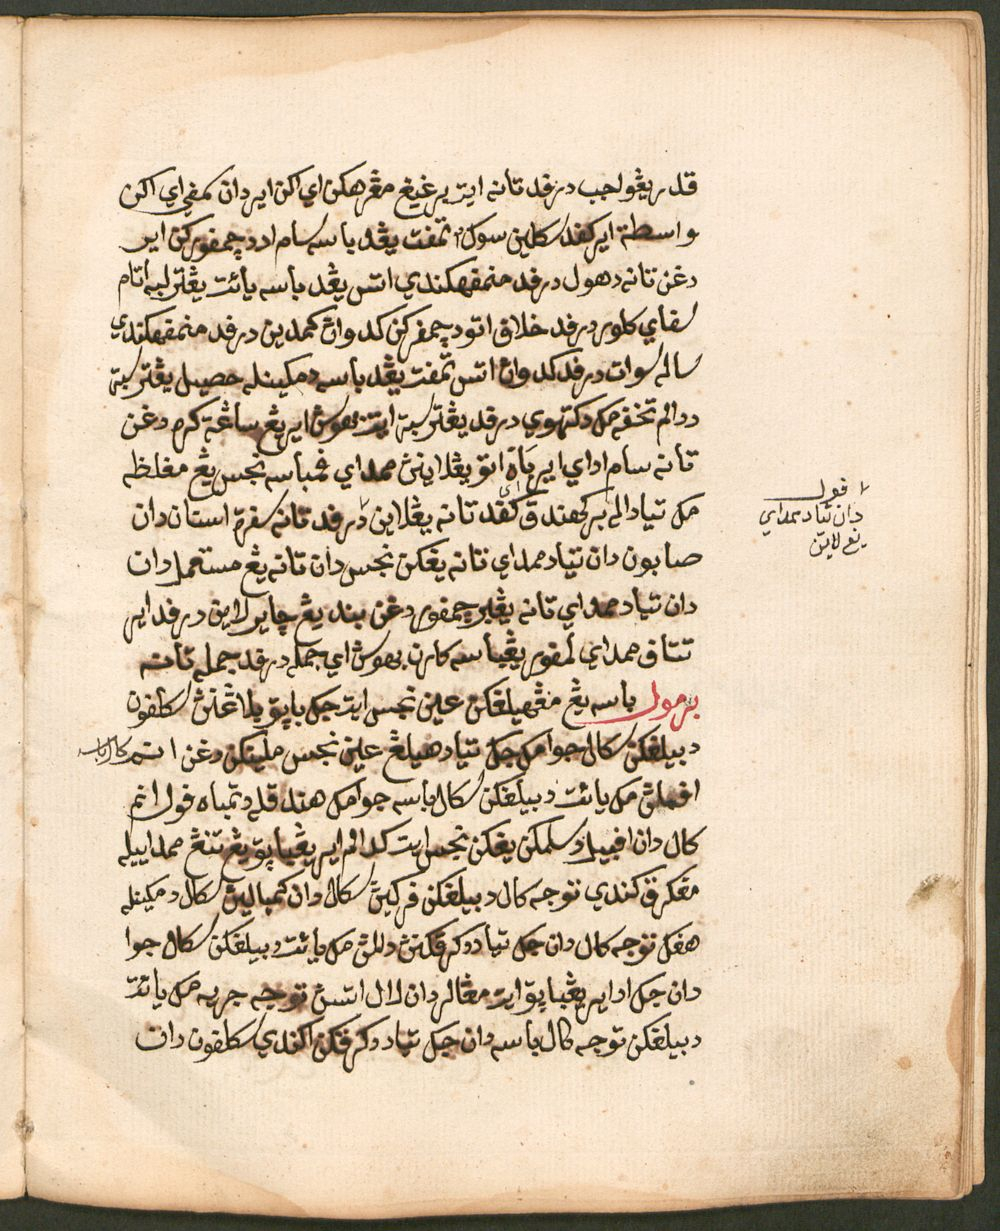 قدر يڠ واجب درفد تانه ايت يڠ مڠرهكن اي اكن اير دان سمفي اي اكن
واسطة اير كفد سكلين سوكو٢ تمفت يڠد باسه سام اد دچمفوركن اير
دغن تانه دهول درفد منمفهكندي اتس يڠد باسه ياءت يڠترلبه اتام
سفاي كلور درفد خلاف اتو دچمفركن كدوان كمدين درفد منمفهكندي
ساله سوات درفد كدوان اتس تمفت يڠد باسه دمكينله حاصيل يڠترسبة
ددالم تحفه مك دكتهوي درفد يڠترسبة ايت بهوس اير يڠ ساڠة كره دغن
تانه سام اداي اير باه اتو يڠلاينن ممداي فمباسه نجس يڠ مغلظه
مك تياداله بركهندق اي كفد تانه يڠلاين درفد تانه سفرة استان دان
صابون دان تياد ممداي تانه يڠكن نجس دان تانه يڠ مستعمل دان
دان تياد ممداي تانه يڠبرچمفور دغن بند يڠ چاير لاين درفد اير
تتاف ممداي لمفور يڠباسه كارن بهوس اي جمله درفد جمله تانه
برمول باسه يڠ مڠهيلڠكن عين نجس ايت جك باپق بلاڠنن سكلفون
دبيلڠكن سكال جوا مك جك تياد هيلڠ عين نجس ملينكن دغن انم كال باسه
افملن مك ياءت دبيلڠكن سكال باسه جوا مك هندقله دتمباه فول انم
كال دان افبيل دسلمكن يڠكن نجس ايت كدالم اير يڠباپق يڠ تنڠ ممداييله
مڠكرقكندي توجه كال دبيلڠكن فركين سكال دان كمبالين سكال دمكينله
هڠك توجه كال دان جك تياد دكرقكنن دالمن مك ياءت دبيلڠكن سكال جوا
دان جك اد اير يڠباپق ايت مڠالر دان لالو اتسن توجه جريه مك ياءت
دبيلڠكن توجه كال باسه دان جك تياد دكرقكن اكندي سكلفون دان
فول
دان تياد ممداي
يڠ لاين